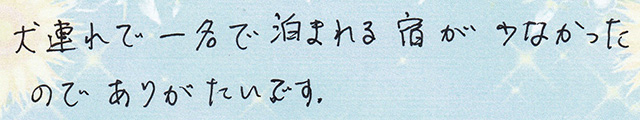 犬連れで一名で泊まれる宿が少なかった
のでありがたいです.